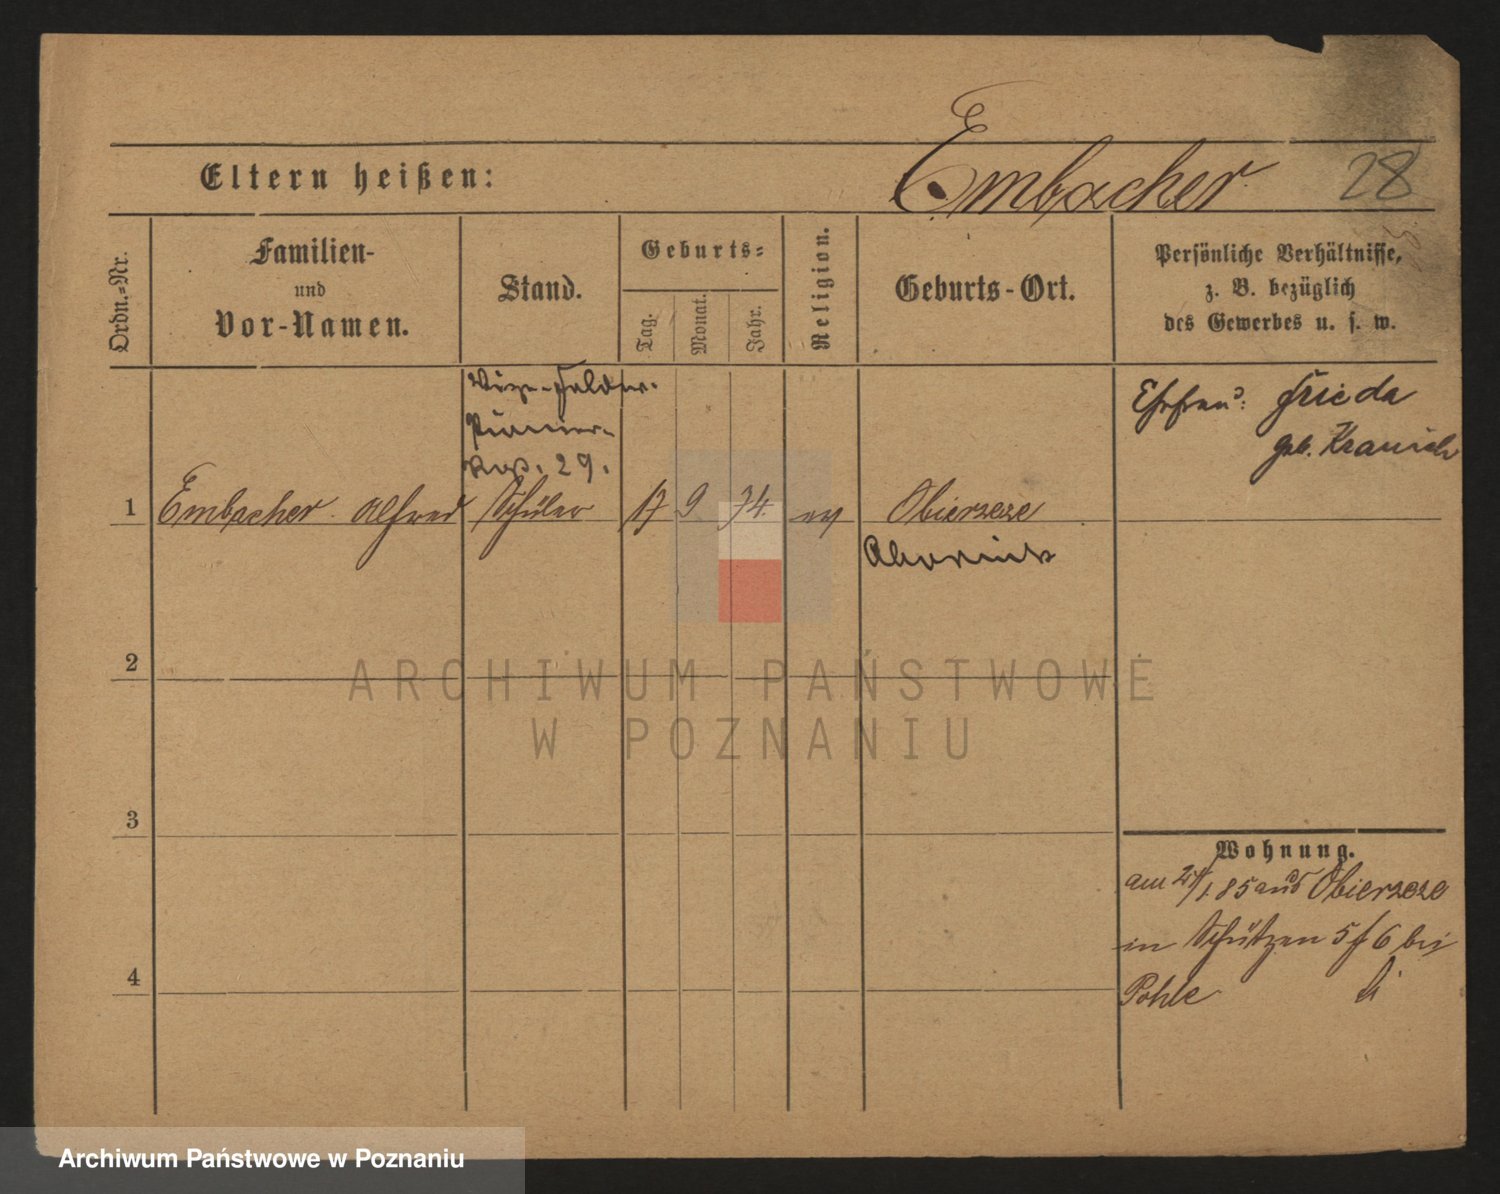 Embacher 28
Eltern heißen:
Ordn.-Nr.
Familien-
und
Vor-Namen.
Stand.
Geburts-
Tag.
Monat.
Jahr.
Religion.
Geburts-Ort.
Persönliche Verhältnisse,
z. B. bezüglich
des Gewerbes u. s. w.
Vize-Feldw.
Pionier-
29.
1 Embacher Alfred Schüler 17 9 74 ev Obierzeze
Ehefrau: Frieda
geb. Kranich
2
3
4
Wohnung.
am 24/1 85 aus Obierzeze
in Schützen 5/6 bei
Pohle
ARCHIWUM PAŃSTWOWE
W POZNANIU
Archiwum Państwowe w Poznaniu